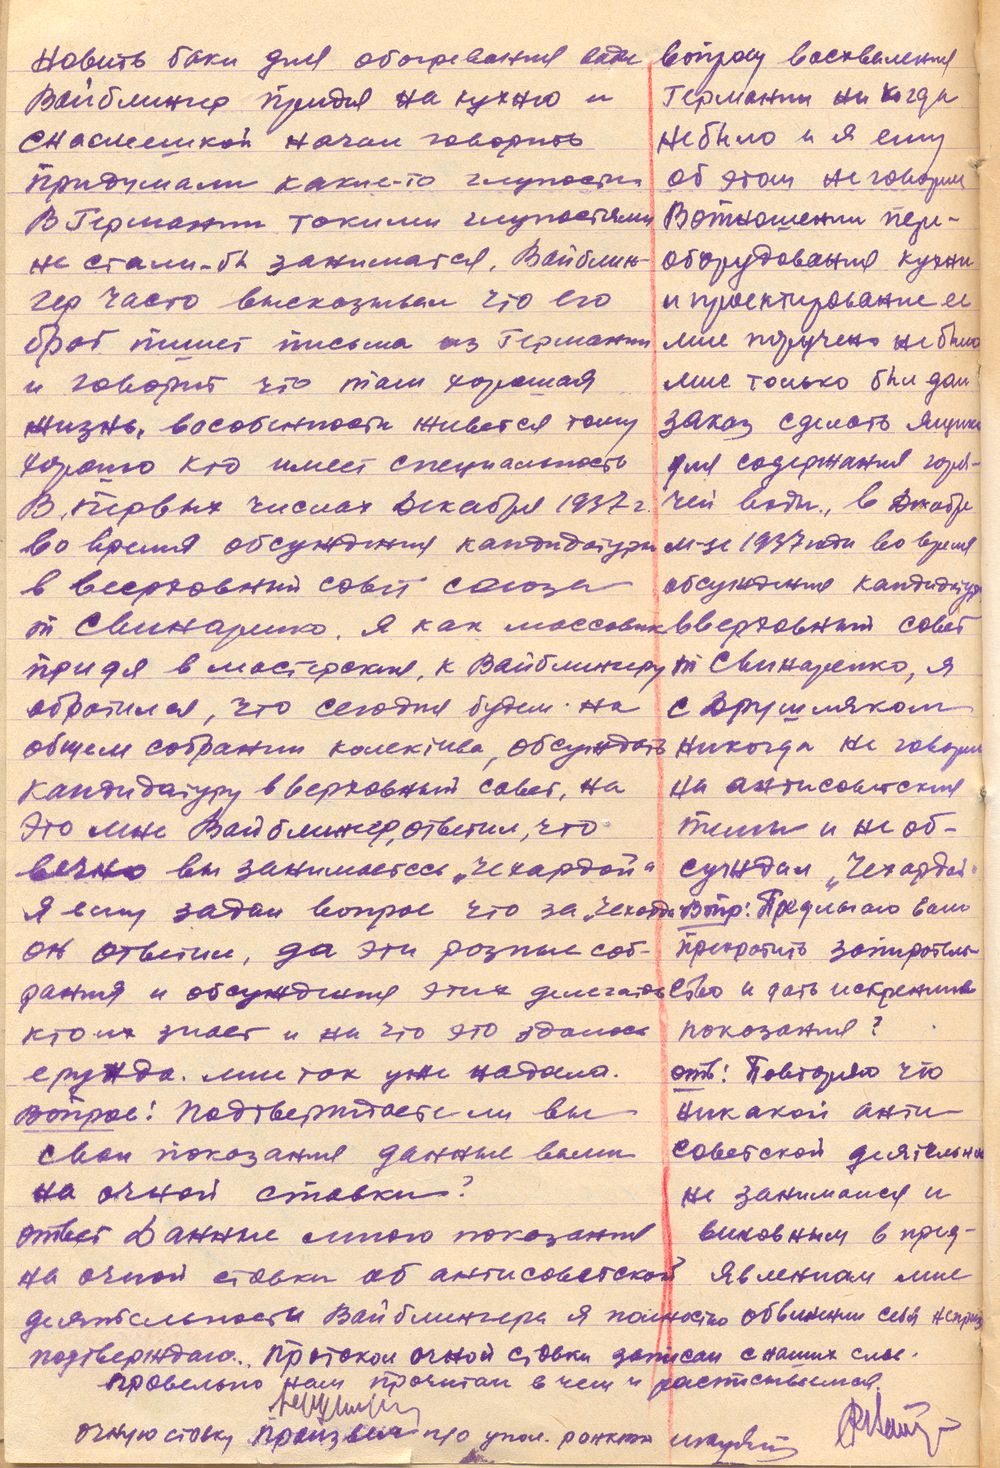 новить баки для обогревания воды
Вайблингер придя на кухню и
снасмешкой начал говорить
придумали какие-то глупости
В Германии такими глупостями
не стали-бы заниматся. Вайблин-
гер часто высказывал что его
брат пишет письма из Германии
и говорит что там хорошая
жизнь, вособенности живется тому
хорошо кто имеет специальность
В первых числах декабря 1937 г.
во время обсуждения кандидатуры
в верховный совет союза
т Свинаренко. Я как массовик
придя в мастерския, к Вайблингеру
обратился, что сегодня будем на
общем собрании колектива, обсуждать
кандидатуру вверховный совет, на
это мне Вайблингер, ответил, что
вечно вы занимаетесь „чехардой“
Я ему задал вопрос что за „чехарда
он ответил, да эти разные соб-
рания и обсуждения этих делегатов
кто их знает и на что это здалось
ерунда. мне так уже надоела.
Вопрос! Подтверждаете ли вы
свои показания данные вами
на очной ставки?
ответ Данные мною показания
на очной ставки об антисоветской
деятельности Вайблингера я полностю
подтверждаю.
вопросу восхваления
Германии никогда
небыло и я ему
об этом не говорил
Вотношении пере-
оборудования кухни
и проектирование ее
мне поручено не было
мне только был дан
заказ сделать ящики
для содержания горя-
чей воды., в декабре
м-це 1937 года во время
обсуждения кандидатуры
вверховный совет
т Свинаренко, я
с Друшляком
никогда не говорил
на антисоветския
темы и не об-
суждал „Чехардой“
Вопр: Предлагаю вам
прекратить запиратель-
ство и дать искренния
показания?
отв: Повторяю что
никакой анти
советской деятельности
не занимался и
виновным в пред-
явленном мне
обвинении себя не признаю
Протокол очной ставки записан с наших слов.
провельно нам прочитан в чем и расписываемся.
очную ставку произвел